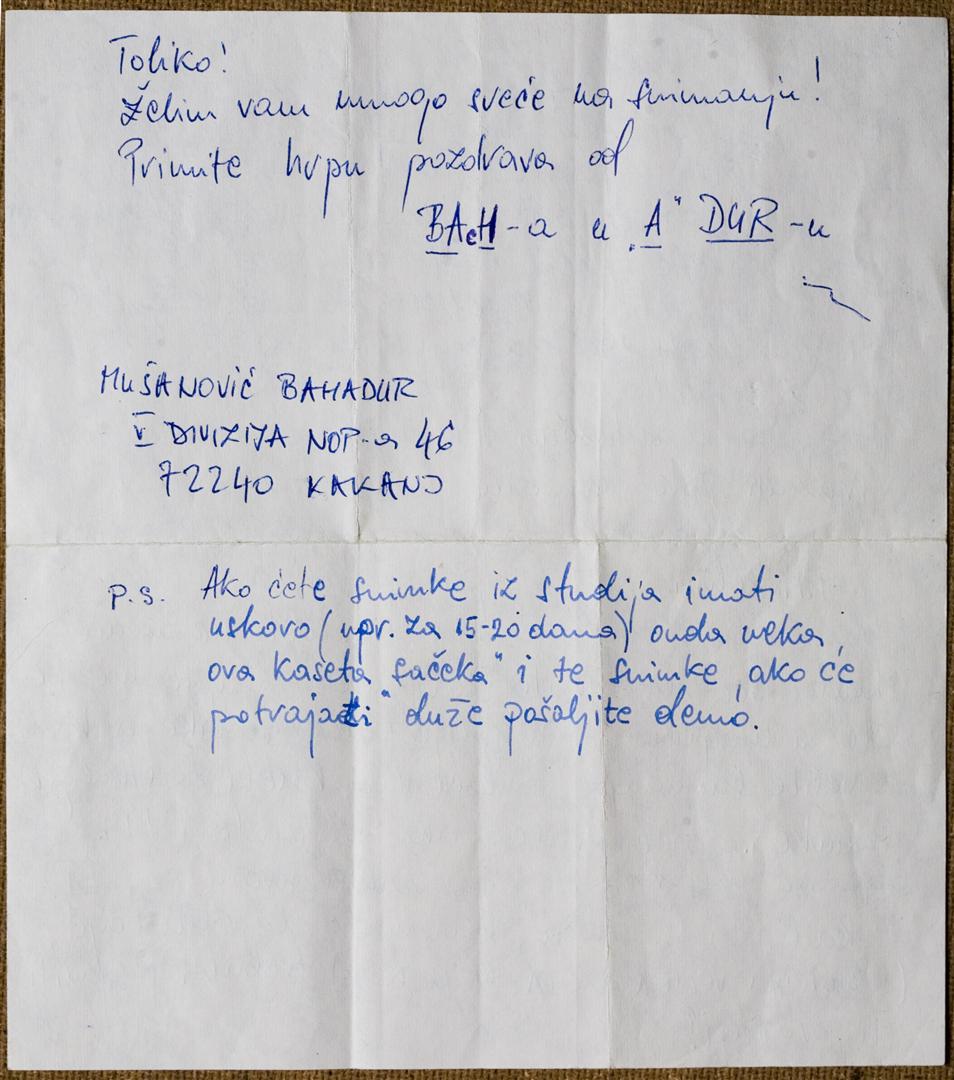 Toliko!
Želim vam mnogo sveće na snimanju!
Primite hrpu pozdrava od
BAcH-a u „A" DUR-u
MUŠANOVIĆ BAHADUR
V DIVIZIJA NOP-a 46
72240 KAKANJ
P.S. Ako ćete snimke iz studija imati
uskoro (npr. za 15-20 dana) onda neka
ova kaseta „sačeka" i te snimke, ako će
potrajati" duže pošaljite demo.